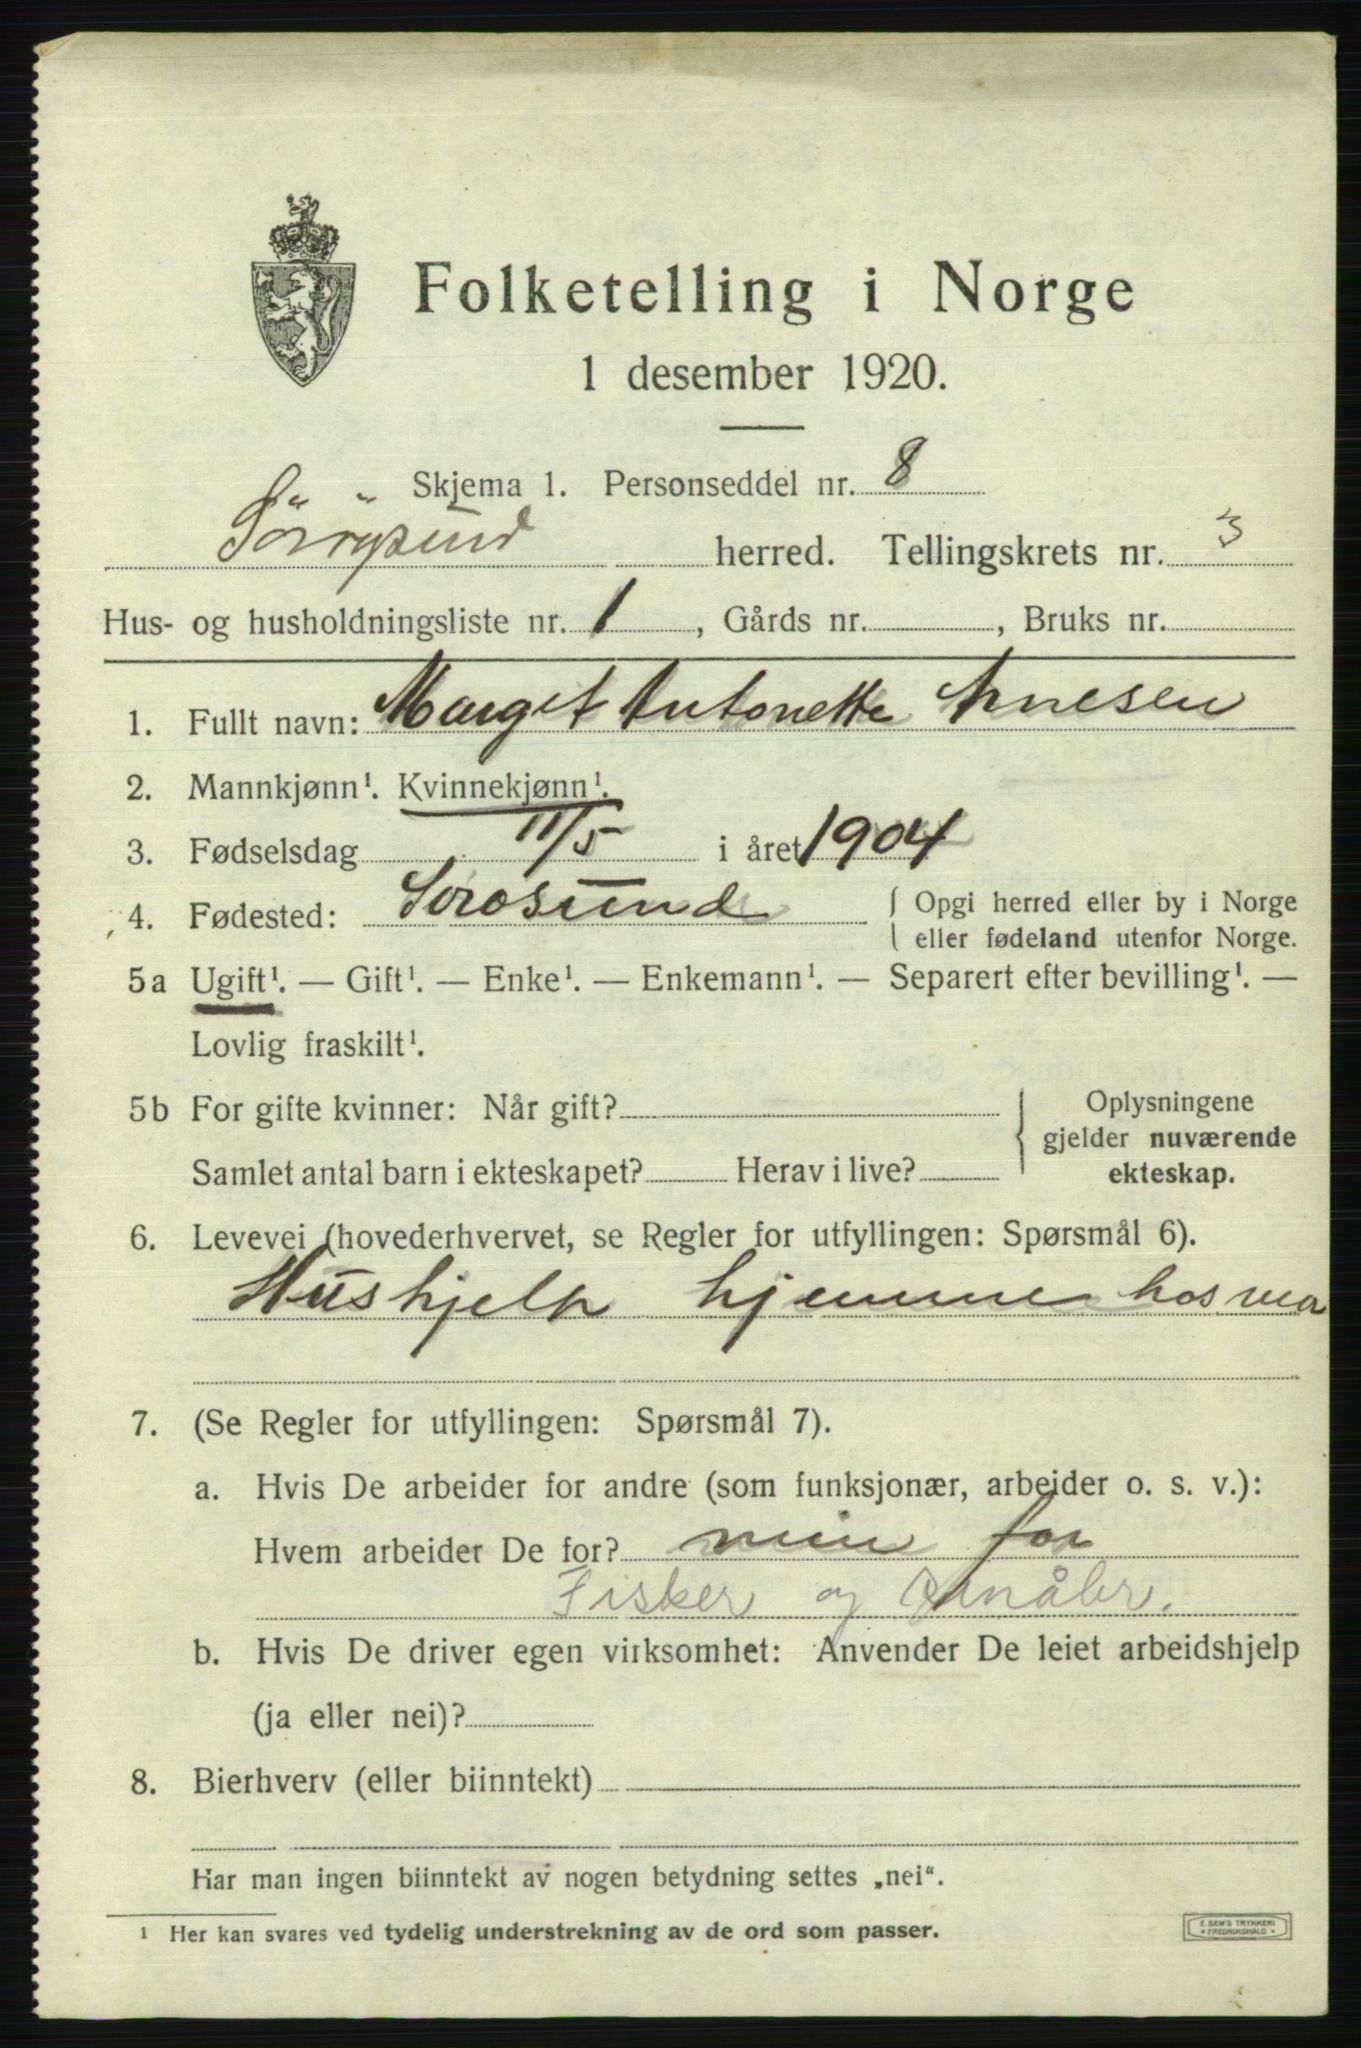 Folketelling i Norge
1 desember 1920.
Skjema 1. Personseddel nr. 8
Sörøysund herred. Tellingskrets nr. 3
Hus- og husholdningsliste nr. 1, Gårds nr. , Bruks nr.
1. Fullt navn: Marget Antonette Arnesen
2. Mannkjønn¹. Kvinnekjønn¹.
3. Fødselsdag 11/5 i året 1904
4. Fødested: Sörosund { Opgi herred eller by i Norge
eller fødeland utenfor Norge.
5a Ugift¹. — Gift¹. — Enke¹. — Enkemann¹. — Separert efter bevilling¹. —
Lovlig fraskilt¹.
5b For gifte kvinner: Når gift? } Oplysningene
gjelder nuværende
Samlet antal barn i ekteskapet? Herav i live? ekteskap.
6. Levevei (hovederhvervet, se Regler for utfyllingen: Spørsmål 6).
Hushjelp hjemme hos
7. (Se Regler for utfyllingen: Spørsmål 7).
a. Hvis De arbeider for andre (som funksjonær, arbeider o. s. v.):
Hvem arbeider De for? min far
Fisker og småbr.
b. Hvis De driver egen virksomhet: Anvender De leiet arbeidshjelp
(ja eller nei)?
8. Bierhverv (eller biinntekt)
Har man ingen biinntekt av nogen betydning settes „nei“.
¹ Her kan svares ved tydelig understrekning av de ord som passer.
E. SEM'S TRYKKERI
* FREDRIKSHALD *